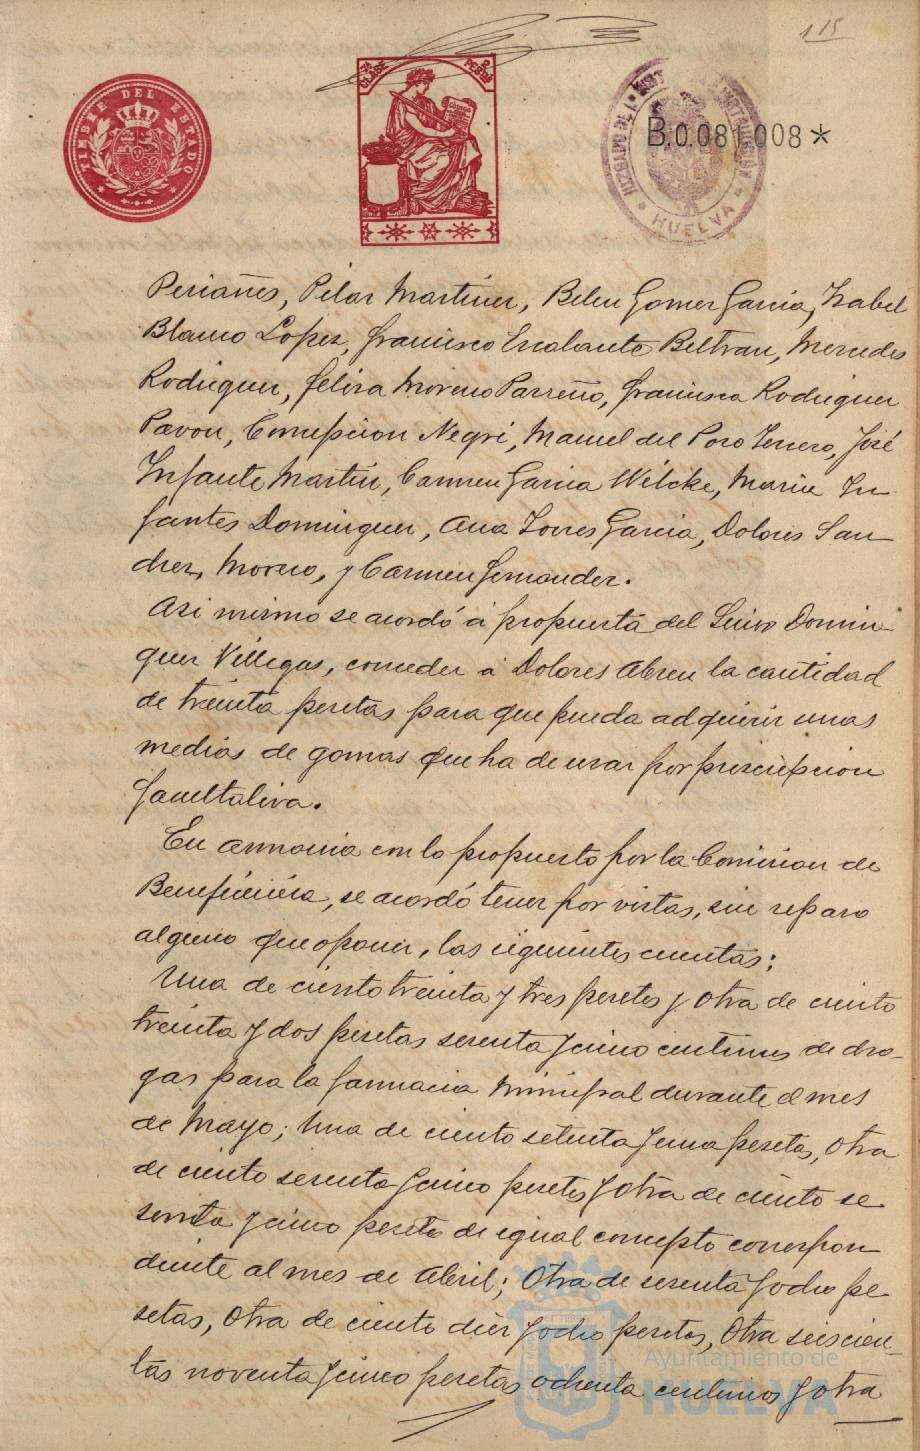 115
TIMBRE DEL ESTADO
7ª CLASE
2 PESETAS
CODIGO
JUZGADO DE 1ª INSTANCIA
HUELVA
B.0.081.008*
Periañes, Pilar Martinez, Belen Gomez Garcia, Isabel
Blanco Lopez, Francisco Escalante Beltran, Mercedes
Rodriguez, Felisa Moreno Parreño, Francisca Rodriguez
Pavon, Concepcion Negri, Manuel del Pozo Tenero, José
Infante Martin, Carmen Garcia Wilcke, Maria In
fantes Dominguez, Ana Torres Garcia, Dolores San
chez, Moreno, y Carmen Fernandez.
Asi mismo se acordó á propuesta del Señor Domin
guez Villegas, conceder á Dolores Abreu la cantidad
de treinta pesetas para que pueda adquirir unas
medias de gomas que ha de usar por prescripcion
facultativa.
En armonia con lo propuesto por la Comision de
Beneficencia, se acordó tener por vistas, sin reparo
alguno que oponer, las siguientes cuentas:
Una de ciento treinta y tres pesetas y otra de ciento
treinta y dos pesetas sesenta y cinco centimos de dro-
gas para la farmacia Municipal durante el mes
de Mayo; Una de ciento setenta y una pesetas, otra
de ciento sesenta y cinco pesetas y otra de ciento se
senta y cinco pesetas de igual concepto correspon
diente al mes de Abril; Otra de sesenta y ocho pe
setas, Otra de ciento diez y ocho pesetas, Otra seiscien-
tas noventa y cinco pesetas ochenta centimos y otra
Ayuntamiento de
HUELVA